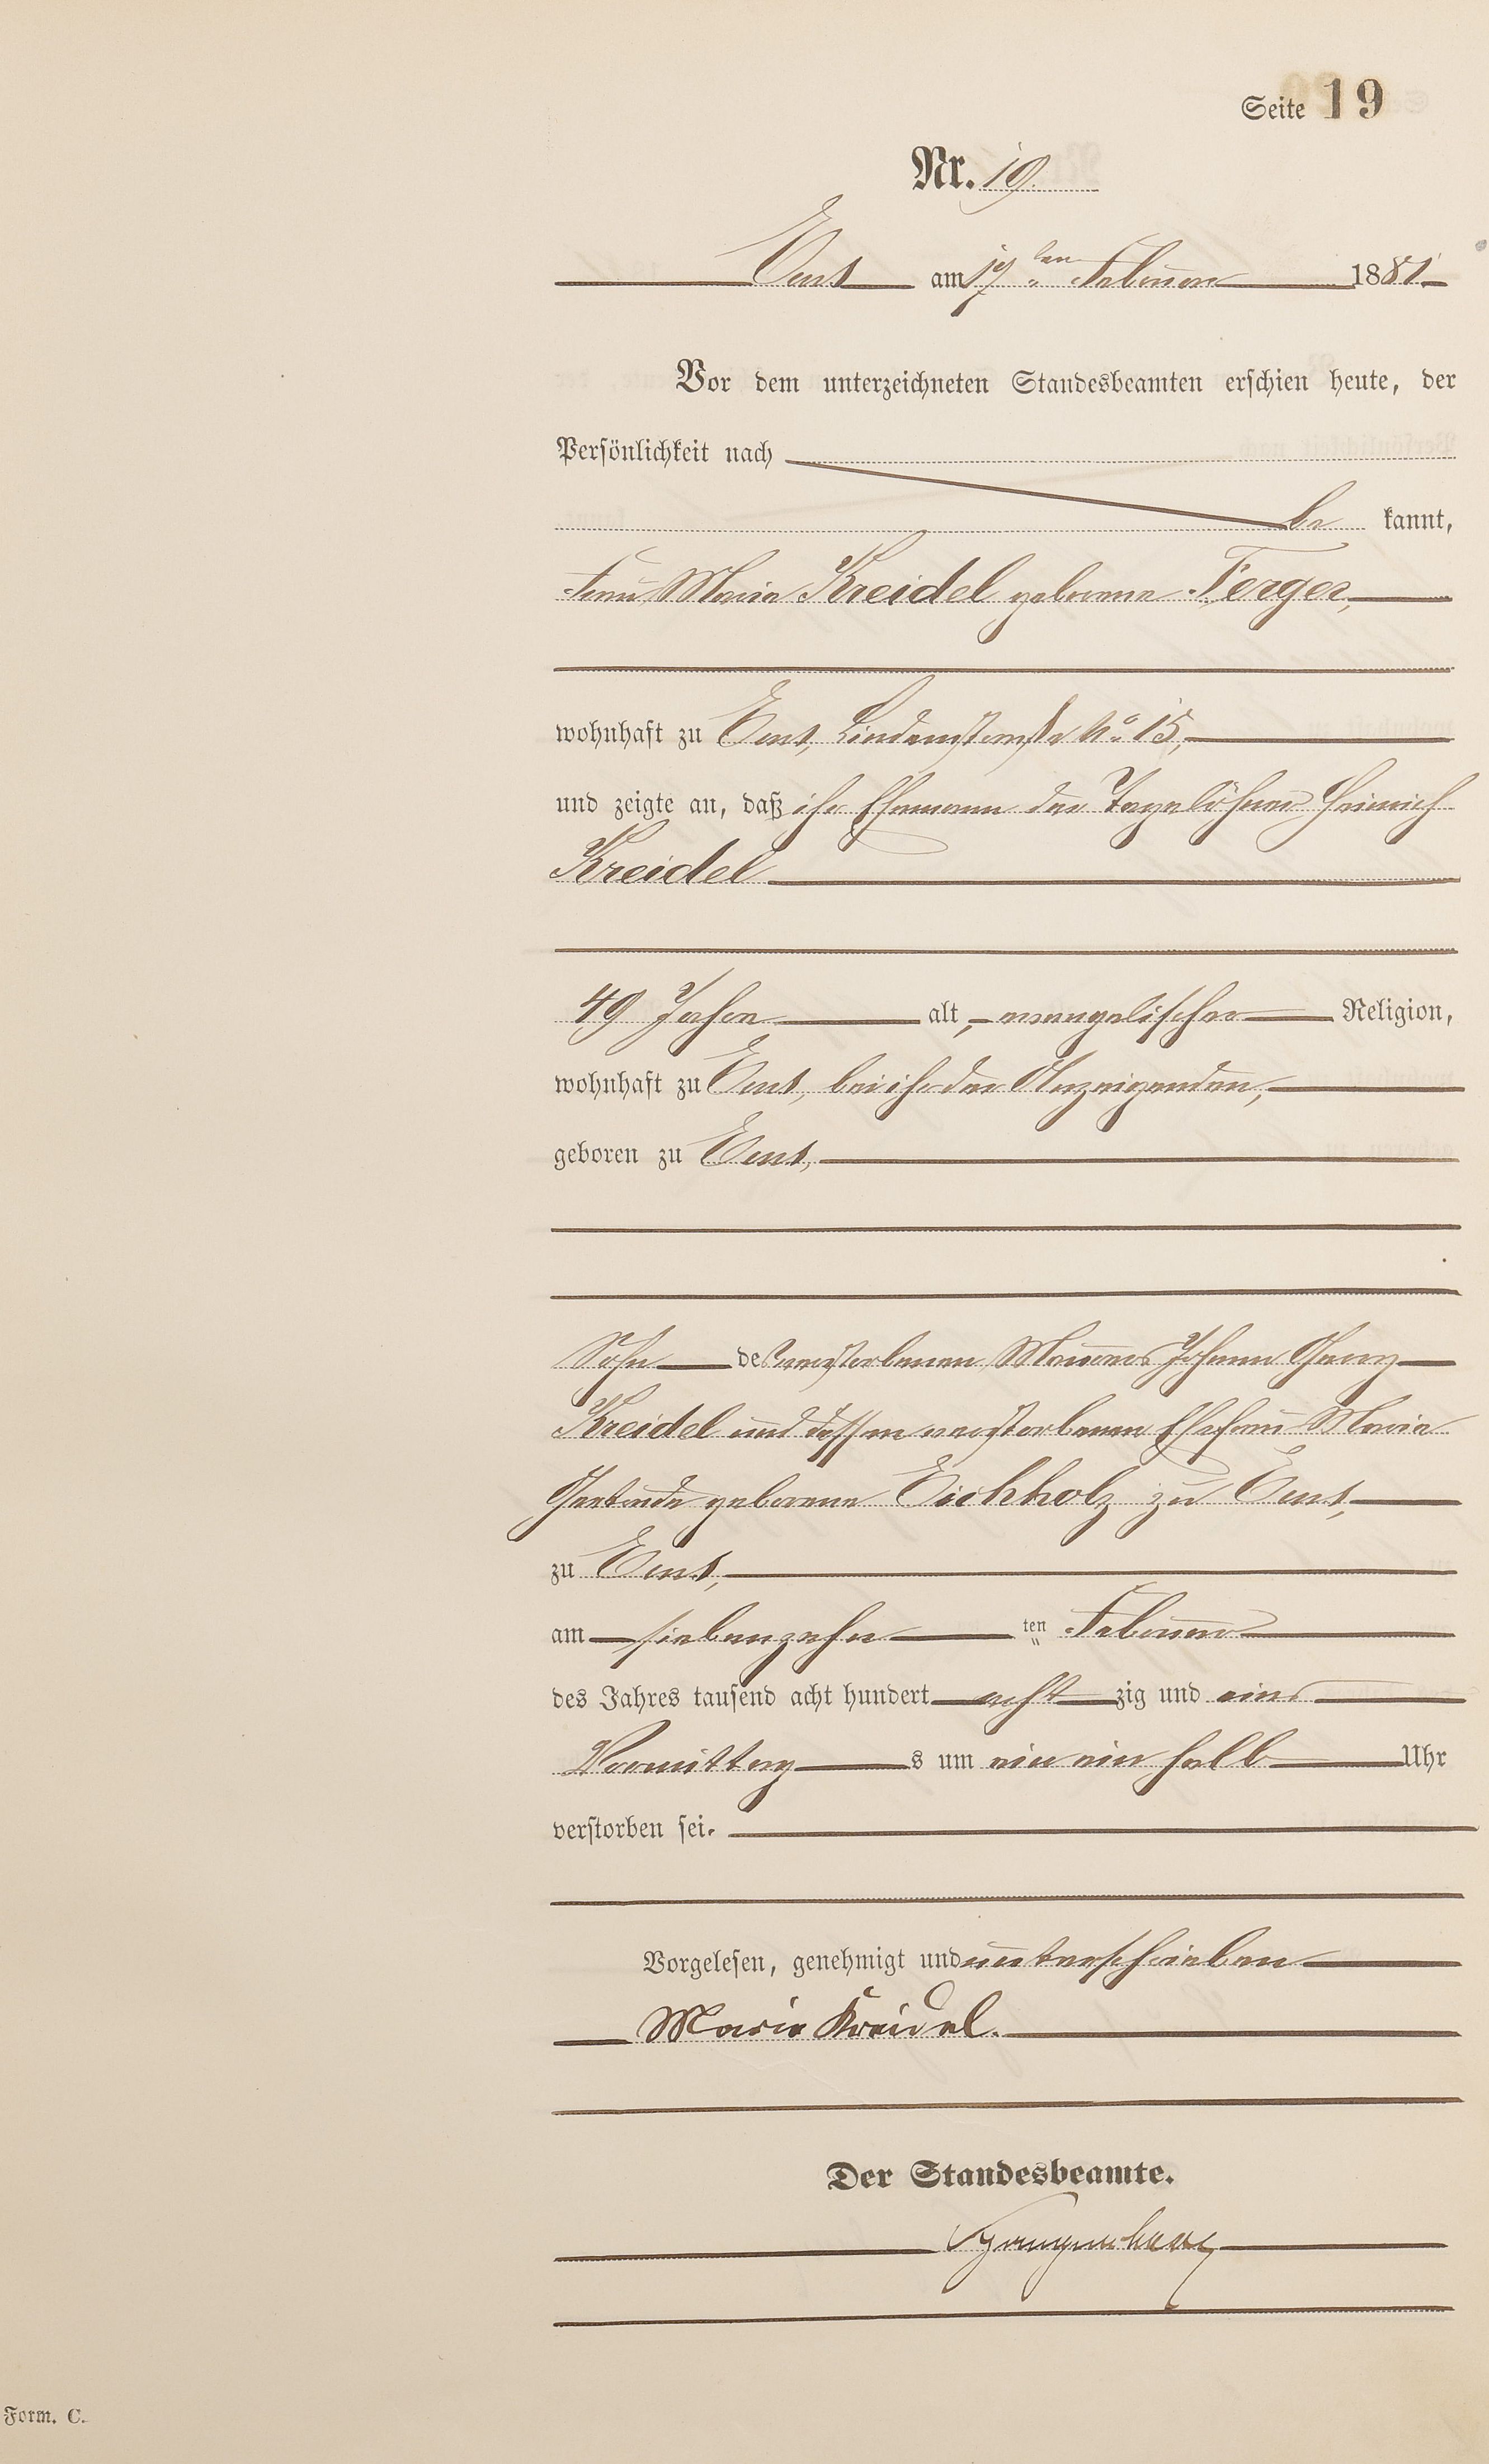 Seite 19
Nr. 19.
Ems am 17ten Februar 1881.
Vor dem unterzeichneten Standesbeamten erschien heute, der
Persönlichkeit nach
be kannt,
Frau Maria Kreidel geborene Ferger,
wohnhaft zu Ems, Lindenstraße No. 15,
und zeigte an, daß ihr Ehemann der Tagelöhner Heinrich
Kreidel
49 Jahre alt, evangelischer Religion,
wohnhaft zu Ems, bei ihr der Anzeigenden,
geboren zu Ems,
Sohn des verstorbenen Maurers Johann Georg
Kreidel und dessen verstorbenen Ehefrau Maria
Gertrude geborene Eichholz zu Ems,
zu Ems,
am siebenzehn ten Februar
des Jahres tausend acht hundert acht zig und eins
Vormittag s um ein ein halb Uhr
verstorben sei.
Vorgelesen, genehmigt und unterschrieben
Maria Kreidel.
Der Standesbeamte.
Form. C.